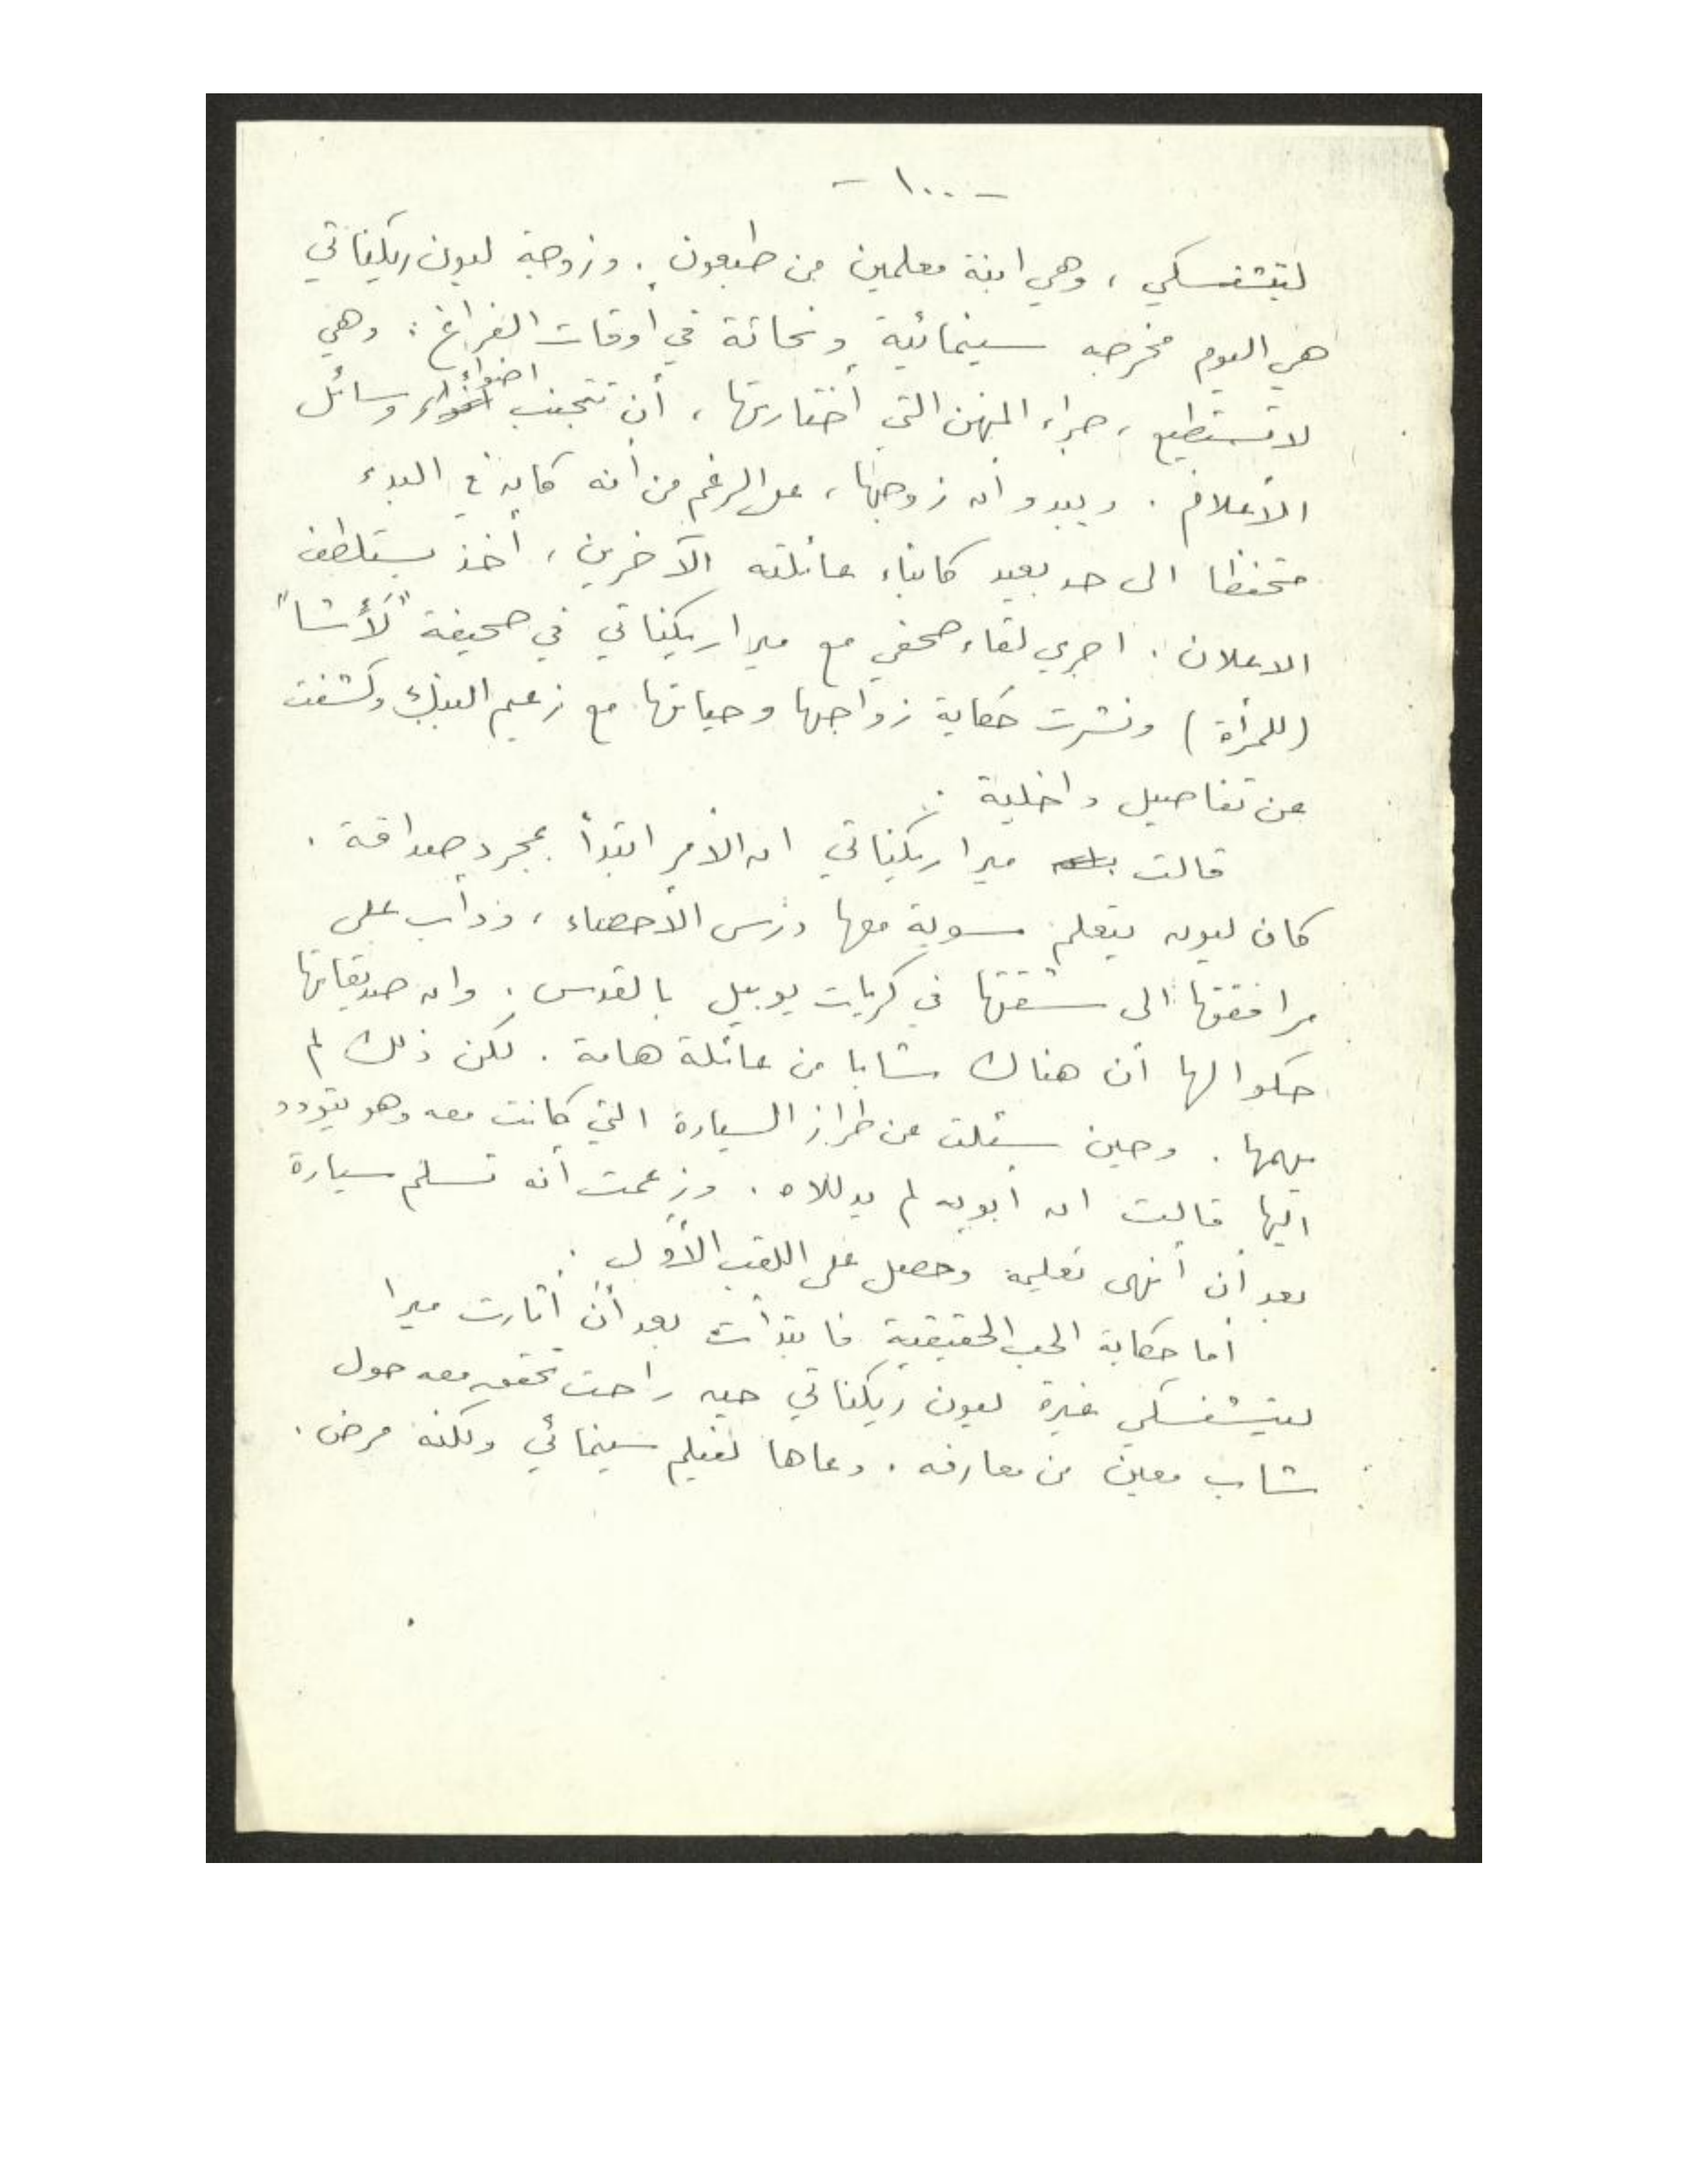 - ١٠٠ -
ليتشفسكي ، وهي ابنة معلمين من طبعون . وزوجة ليون ريكناتي
هي اليوم مخرجه سينمائية ونحاتة في أوقات الفراغ ؛ وهي
لا تستطيع ، جراء المهن التي أختارتها ، أن تتجنب اضواء وسائل
الأعلام . ويبدو ان زوجها ، على الرغم من أنه كان في البدء
متحفظا الى حد بعيد كابناء عائلته الآخرين ، أخذ يستلطف
الاعلان . اجري لقاء صحفي مع ميرا ريكناتي في صحيفة "لَأشا"
(للمرأة) ونشرت حكاية زواجها وحياتها مع زعيم البنك وكشفت
عن تفاصيل داخلية .
قالت ميرا ريكناتي ان الأمر ابتدأ بمجرد صداقة .
كان ليون يتعلم سوية معها درس الأحصاء ، ودأب على
مرافقتها الى شقتها في كريات يوبيل بالقدس . وان صديقاتها
حكوا لها أن هناك شابا من عائلة هامة . لكن ذلك لم
يهمها . وحين سئلت عن طراز السيارة التي كانت معه وهو يتودد
اليها قالت ان أبويه لم يدللاه . وزعمت أنه تسلم سيارة
بعد أن أنهى تعليمه وحصل على اللقب الأول .
أما حكاية الحب الحقيقية فابتدأت بعد أن أثارت ميرا
ليتشفسكي غيرة ليون ريكناتي حين راحت تحقق معه حول
شاب معين من معارفه . دعاها لفيلم سينمائي ولكنه مرض .